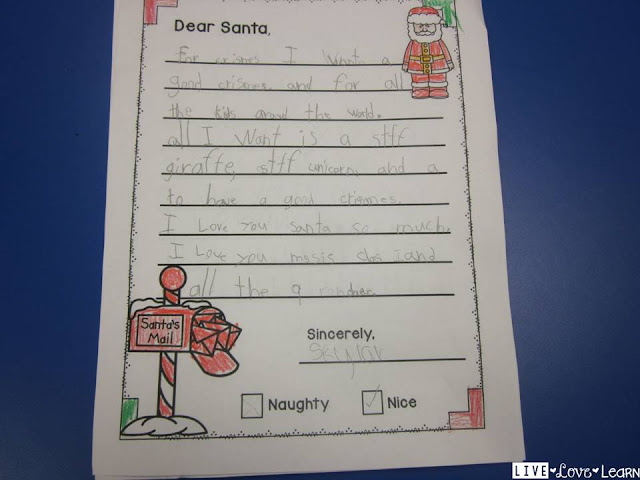 Dear Santa,
For crismes I Want a
good crismes and for all
the kids around the world.
all I Want is a stff
giraffe, stff unicorn, and a
to have a good crismes.
I Love You santa so much.
I Love You and
all the
Sincerely,
Skylar
Naughty
Nice
Santa's
Mail
LIVE Love LEARN